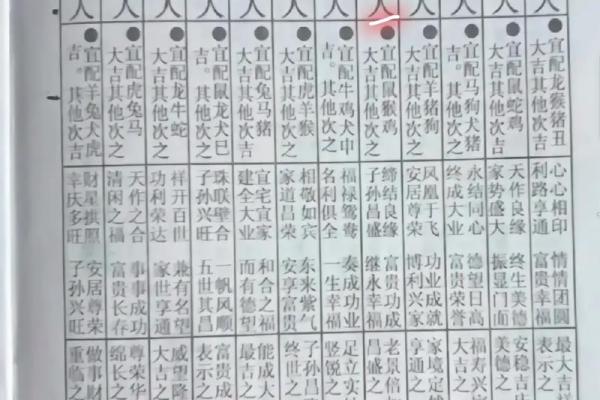 人 人 人 人 人 人 人 人 人 人 人 人
宜配龙猴猪丑
大吉其他次之
宜配鼠蛇鸡
大吉其他次吉
宜配马狗犬猪
吉。其他次之
宜配羊猪狗
大吉其他次之
宜配鼠猴鸡
大吉其他次之
宜配牛鸡犬申
吉。其他次之
宜配虎羊猴
大吉其他次之
宜配兔马猪
大吉其他次吉
宜配鼠龙犬巳
吉。其他次之
宜配龙牛蛇
大吉其他次之
宜配虎兔马
大吉其他次之
宜配羊兔犬虎
吉。其他次吉
心心相印 情情团圆
利路亨通 富贵幸福
天作良缘 终生美德
家势盛大 振显门面
永结同心 德望日高
终成大业 富贵荣誉
凤凰于飞 功业成就
安居尊荣 博利兴家
缔结良缘 富贵功成
子孙昌盛 继永幸福
福禄鸳鸯 奏成功业
名利俱全 一生幸福
相敬如宾 东来紫气
家道昌荣 安享富贵
宜宅宜家 和合之福
建全大业 而有德望
珠联璧合 一帆风顺
子孙兴旺 五世其昌
祥开百世 兼有名望
功利荣达 家世亨通
天作之合 事事成功
清闲之福 富贵长存
财星拱照 安居尊荣
幸庆多旺 子孙兴旺
最大吉
表示之
安稳吉
美德之
福寿兴
大吉之
家境定
亨通之
老景倍
昌盛之
足立实
竖锐之
子孙昌
终世之
能成大
最吉之
富贵成
表示之
威望隆
大吉之
尊荣华
绵长之
做事财
重临之